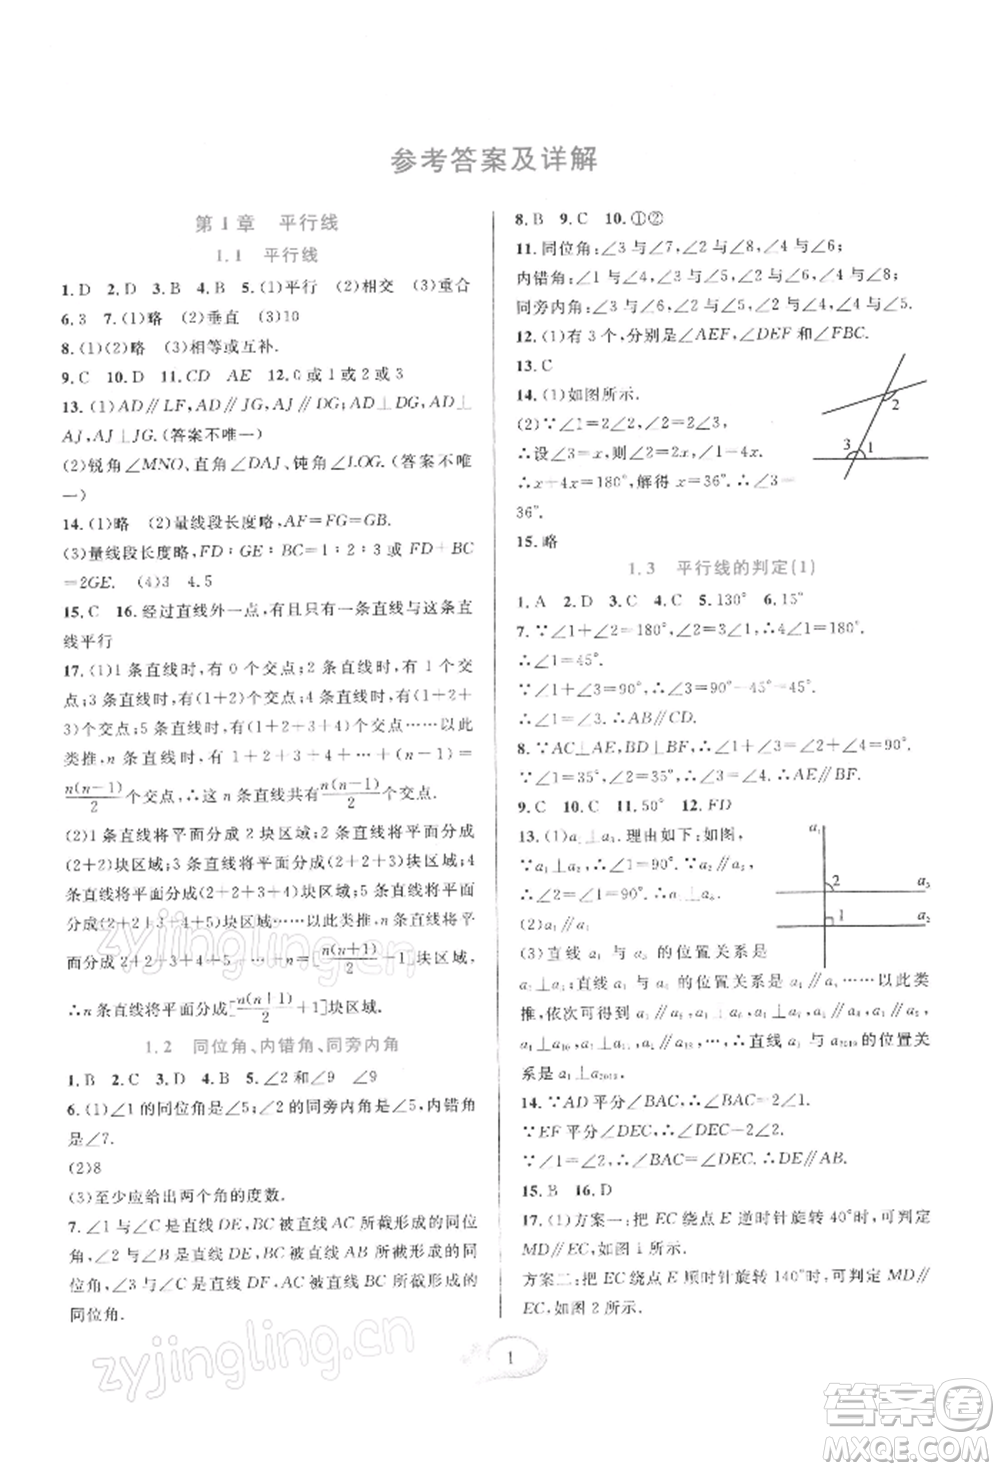 参考答案及详解
第1章 平行线
1.1 平行线
1.D 2.D 3.B 4.B 5.(1)平行 (2)相交 (3)重合
6.3 7.(1)略 (2)垂直 (3)10
8.(1)(2)略 (3)相等或互补.
9.C 10.D 11.CD AE 12.0或1或2或3
13.(1)AD∥LF,AD∥JG,AJ∥DG;AJ⊥DG,AD⊥
AJ,AJ⊥JG.(答案不唯一)
(2)锐角∠MNO,直角∠DAJ,钝角∠LOG.(答案不唯
一)
14.(1)略 (2)量线段长度略,AF=FG=GB.
(3)量线段长度略,FD∶GE∶BC=1∶2∶3或FD+BC
=2GE. (4)3 4.5
15.C 16.经过直线外一点,有且只有一条直线与这条直
线平行
17.(1)1条直线时,有0个交点;2条直线时,有1个交
点;3条直线时,有(1+2)个交点;4条直线时,有(1+2+
3)个交点;5条直线时,有(1+2+3+4)个交点……以此
类推,n条直线时,有1+2+3+4+…+(n-1)=
n(n-1)/2个交点,∴这n条直线共有n(n-1)/2个交点.
(2)1条直线将平面分成2块区域;2条直线将平面分成
(2+2)块区域;3条直线将平面分成(2+2+3)块区域;4
条直线将平面分成(2+2+3+4)块区域;5条直线将平
面分成(2+2+3+4+5)块区域……以此类推,n条直线将
平面分成2+2+3+4+5+…+n=[n(n+1)/2+1]块区域,
∴n条直线将平面分成[n(n+1)/2+1]块区域.
1.2 同位角、内错角、同旁内角
1.B 2.C 3.D 4.B 5.∠2和∠9 ∠9
6.(1)∠1的同位角是∠5;∠2的同旁内角是∠5,内错角
是∠7.
(2)8
(3)至少应给出两个角的度数.
7.∠1与∠C是直线DE,BC被直线AC所截形成的同位
角;∠2与∠B是直线DE,BC被直线AB所截形成的同
位角;∠3与∠C是直线DF,AC被直线BC所截形成的
同位角.
8.B 9.C 10.①②
11.同位角:∠3与∠7,∠2与∠8,∠4与∠6;
内错角:∠1与∠4,∠3与∠5,∠2与∠6,∠4与∠8;
同旁内角:∠3与∠6,∠2与∠5,∠2与∠4,∠4与∠5.
12.(1)有3个,分别是∠AEF,∠DEF和∠FBC.
13.C
14.(1)如图所示.
(2)∵∠1=2∠2,∠2=2∠3,
∴设∠3=x,则∠2=2x,∠1=4x.
∴x+4x=180°,解得x=36°.∴∠3=
36°.
15.略
2
3
1
1.3 平行线的判定(1)
1.A 2.D 3.C 4.C 5.130° 6.15°
7.∵∠1+∠2=180°,∠2=3∠1,∴4∠1=180°.
∴∠1=45°.
∵∠1+∠3=90°,∴∠3=90°-45°=45°.
∴∠1=∠3.∴AB∥CD.
8.∵AC⊥AE,BD⊥BF,∴∠1+∠3=∠2+∠4=90°.
∵∠1=35°,∠2=35°,∴∠3=∠4.∴AE∥BF.
9.C 10.C 11.50° 12.FD
13.(1)a₁⊥a₃.理由如下:如图,
∵a₁⊥a₂,∴∠1=90°.∵a₂∥a₃,
∴∠2=∠1=90°.∴a₁⊥a₃.
(2)a₁∥a₄
(3)直线a₁与a₃的位置关系是
a₁⊥a₃;直线a₁与a₄的位置关系是a₁∥a₄……以此类
推,依次可得a₁∥a₅,a₁⊥a₆,a₁⊥a₇,a₁∥a₈,a₁∥a₉,
a₁⊥a₁₀,a₁⊥a₁₁,…,∴直线a₁与a₂₀₁₉的位置关
系是a₁⊥a₂₀₁₉.
a₁
2
a₃
1
a₂
14.∵AD平分∠BAC,∴∠BAC=2∠1.
∵EF平分∠DEC,∴∠DEC=2∠2.
∵∠1=∠2,∴∠BAC=∠DEC.∴DE∥AB.
15.B 16.D
17.(1)方案一:把EC绕点E逆时针旋转40°时,可判定
MD∥EC,如图1所示.
方案二:把EC绕点E顺时针旋转140°时,可判定MD∥
EC,如图2所示.
1
zyjingling.cn
zyjingling.cn
答案圈
MXQE.COM